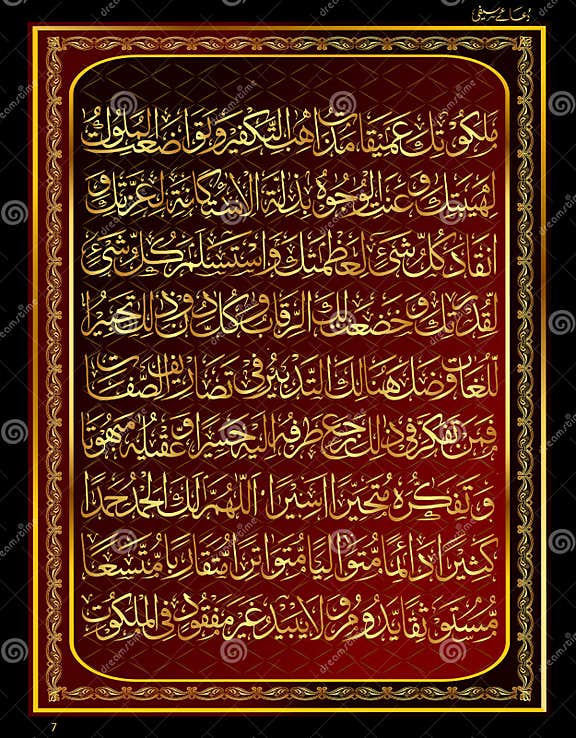 دعائے سیفی
مَلَكُوْتِكَ عَمِيْقَاتُ مَذَاهِبِ التَّفْكِيْرِ وَتَوَاضَعَتِ الْمُلُوْكُ
لِهَيْبَتِكَ وَعَنَتِ الْوُجُوْهُ بِذِلَّةِ الْاِسْتِكَانَةِ لِعِزَّتِكَ وَ
انْقَادَ كُلُّ شَيْءٍ لِعَظَمَتِكَ وَاسْتَسْلَمَ كُلُّ شَيْءٍ
لِقُدْرَتِكَ وَخَضَعَتْ لَكَ الرِّقَابُ وَكَلَّ دُوْنَ ذٰلِكَ تَحْبِيْرُ
اللُّغَاتِ وَضَلَّ هُنَالِكَ التَّدْبِيْرُ فِيْ تَصَارِيْفِ الصِّفَاتِ
فَمَنْ تَفَكَّرَ فِيْ ذٰلِكَ رَجَعَ طَرْفُهُ اِلَيْهِ حَسِيْرًا وَعَقْلُهُ مَبْهُوْتًا
وَتَفَكُّرُهُ مُتَحَيِّرًا اَسِيْرًا اَللّٰهُمَّ لَكَ الْحَمْدُ حَمْدًا
كَثِيْرًا دَائِمًا مُّتَوَالِيًا مُّتَوَاتِرًا مُّتَقَارِبًا مُّتَّسِعًا
مُّسْتَوْثِقًا يَّدُوْمُ وَلَا يَبِيْدُ غَيْرَ مَفْقُوْدٍ فِي الْمَلَكُوْتِ
7
dreamstime